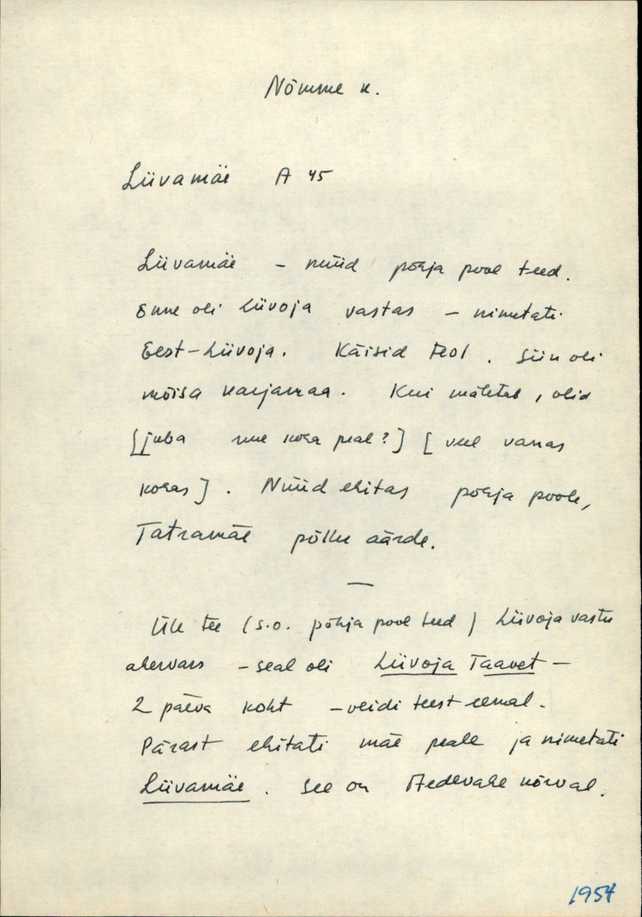 Nõmme k.
Liivamäe A 45
Liivamäe – nüüd põhja pool teed.
Enne oli Liivoja vastas – nimetati
Eest-Liivoja. Käisid teol. Siin oli
mõisa karjamaa. Kui mäletab, olid
[juba uue koha peal?] [veel vanas
kohas]. Nüüd ehitas põhja poole,
Tatramäe põllu äärde.
—
Üle tee (s.o. põhja pool teed) Liivoja vastu
ahervars – seal oli Liivoja Taavet –
2 päeva koht – veidi teest eemal.
Pärast ehitati mäe peale ja nimetati
Liivamäe. See on Aedevahe kõrval.
1954